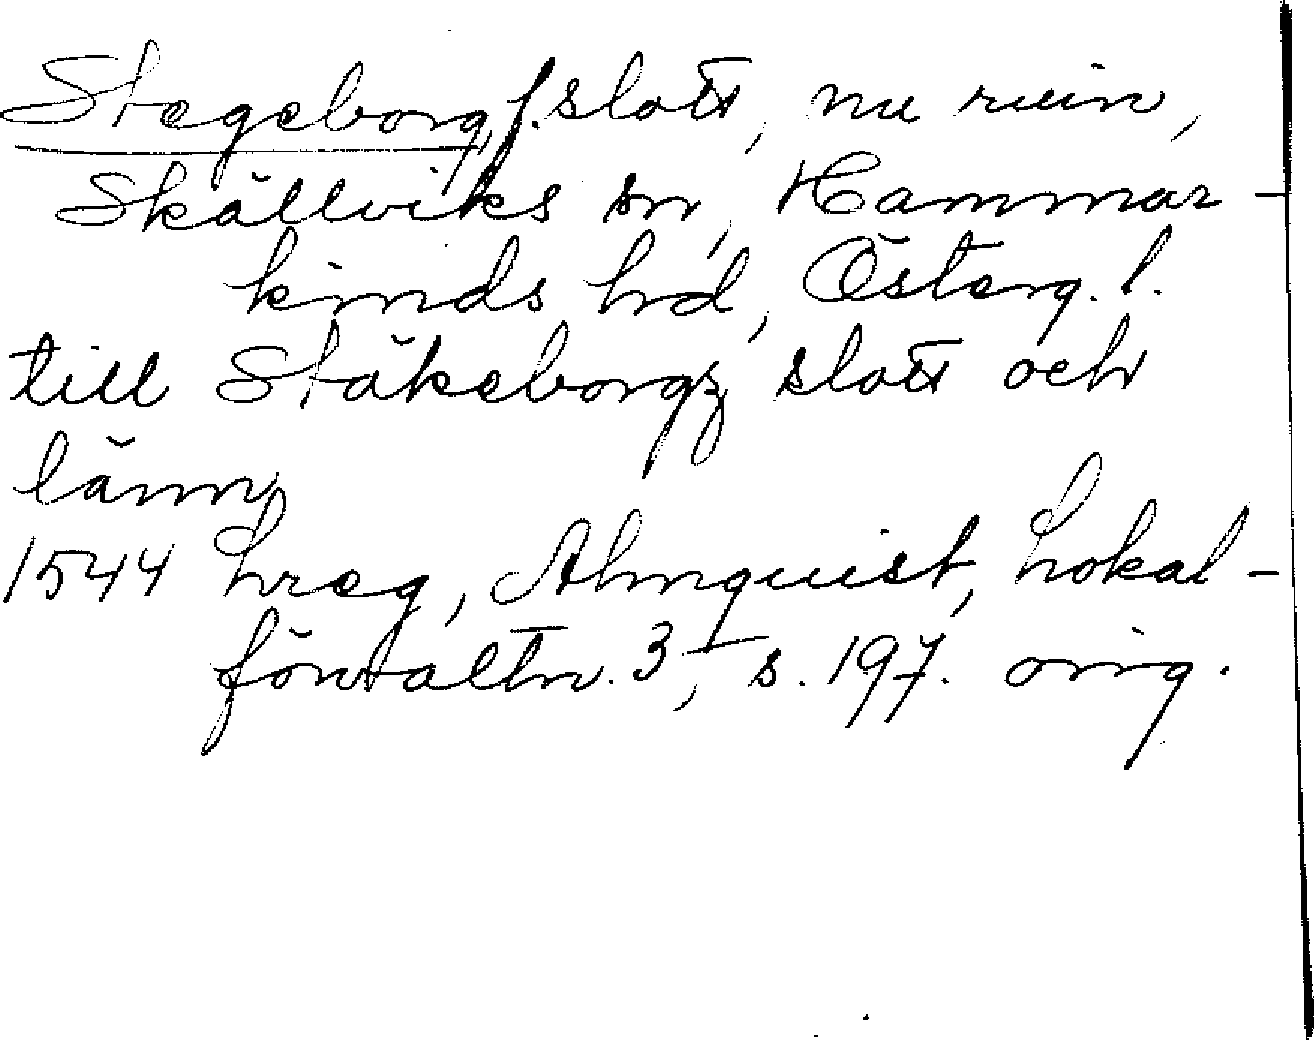 Stegeborg, f. slott, nu ruin,
Skällviks sn, Hammar-
kinds hd, Österg. l.
till Stäkeborgz slott och
länn
1544 Lreg, Almquist, Lokal-
förvaltn. 3, s. 197. orig.